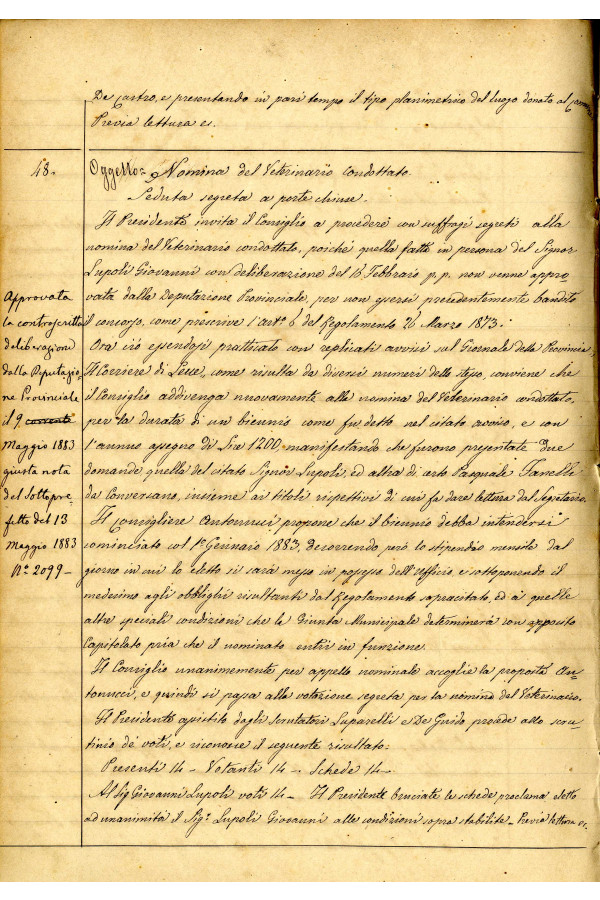 De Castro, e presentando in pari tempo il tipo planimetrico del luogo donato al Comune
Previa lettura ec.
48.
Oggetto = Nomina del Veterinario condottato.
Seduta segreta a porte chiuse.
Il Presidente invita il Consiglio a procedere con suffragi segreti alla
nomina del Veterinario condottato, poiché quella fatta in persona del Signor
Lupoli Giovanni con deliberazione del 16 Febbraio p. p. non venne appro
vata dalla Deputazione Provinciale, per non essersi precedentemente bandito
il concorso, come prescrive l'arto 6 del Regolamento 26 Marzo 1873.
Ora ciò essendosi pratticato con replicati avvisi sul Giornale della Provincia
Il Corriere di Lecce, come risulta da diversi numeri dello stesso, conviene che
il Consiglio addivenga nuovamente alla nomina del Veterinario condottato,
per la durata di un biennio come fu detto nel citato avviso, e con
l'annuo assegno di Lire 1200, manifestando che furono presentate due
domande quella del citato Signor Lupoli, ed altra di certo Pasquale Fanelli
da Conversano, insieme ai titoli rispettivi di cui fa dare lettura dal Segretario.
Il consigliere Antonucci propone che il biennio debba intendersi
cominciato col 1º Gennaio 1883, decorrendo però lo stipendio mensile dal
giorno in cui lo eletto si sarà messo in possesso dell'ufficio, e sottoponendo il
medesimo agli obblighi risultanti dal Regolamento sopracitato, ed a quelle
altre speciali condizioni che la Giunta Municipale determinerà con apposito
Capitolato pria che il nominato entri in funzione.
Il Consiglio unanimemente per appello nominale accoglie la proposta An-
tonucci, e quindi si passa alla votazione segreta per la nomina del Veterinario.
Il Presidente assistito dagli Scrutatori Luparelli e De Guido procede allo scru-
tinio de' voti, e riconosce il seguente risultato:
Presenti 14 - Votanti 14 - Schede 14 -
Al Sig Giovanni Lupoli voti 14 - Il Presidente bruciate le schede proclama eletto
ad unanimità il Sigr Lupoli Giovanni alle condizioni sopra stabilite - Previa lettura ec.
Approvata
la controscritta
deliberazione
dalla Deputazio-
ne Provinciale
il 9 corrente
Maggio 1883
giusta nota
del Sottopre-
fetto del 13
Maggio 1883
No 2099 -